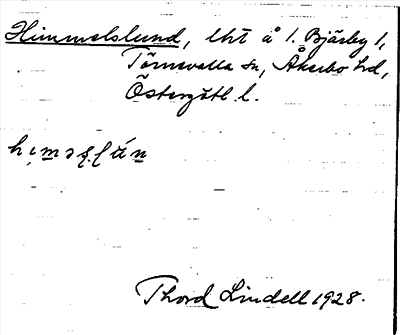 Himmelslund, lht å 1. Bjärby 1,
Törnevalla sn, Åkerbo hd,
Östergötl l.
Thord Lindell 1928.